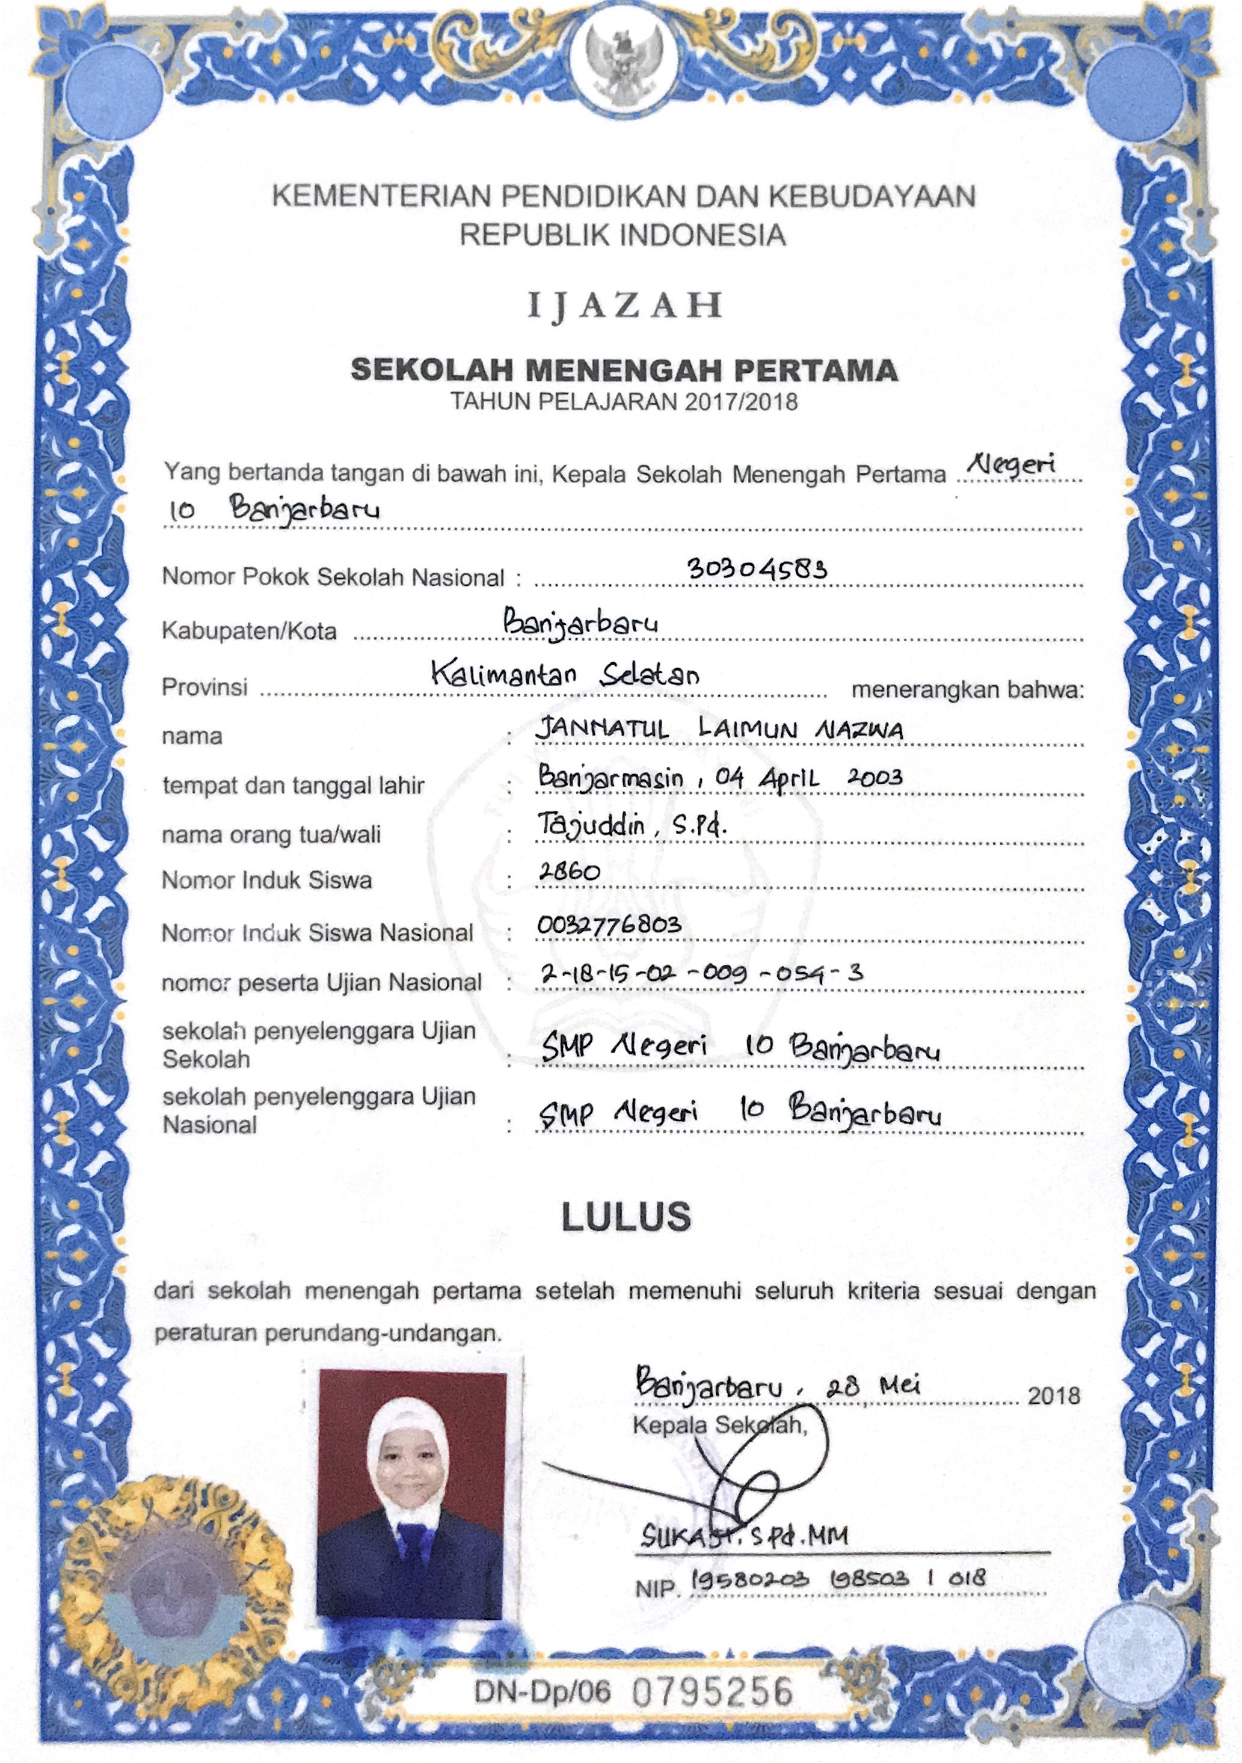 KEMENTERIAN PENDIDIKAN DAN KEBUDAYAAN
REPUBLIK INDONESIA
IJAZAH
SEKOLAH MENENGAH PERTAMA
TAHUN PELAJARAN 2017/2018
Yang bertanda tangan di bawah ini, Kepala Sekolah Menengah Pertama Negeri
10 Banjarbaru
Nomor Pokok Sekolah Nasional : 30304583
Kabupaten/Kota Banjarbaru
Provinsi Kalimantan Selatan menerangkan bahwa:
nama : JANNATUL LAIMUN NAZWA
tempat dan tanggal lahir : Banjarmasin, 04 April 2003
nama orang tua/wali : Tajuddin, S.Pd.
Nomor Induk Siswa : 2860
Nomor Induk Siswa Nasional : 0032776803
nomor peserta Ujian Nasional : 2-18-15-02-009-054-3
sekolah penyelenggara Ujian
Sekolah : SMP Negeri 10 Banjarbaru
sekolah penyelenggara Ujian
Nasional : SMP Negeri 10 Banjarbaru
LULUS
dari sekolah menengah pertama setelah memenuhi seluruh kriteria sesuai dengan
peraturan perundang-undangan.
Banjarbaru, 28 Mei 2018
Kepala Sekolah,
S.Pd.MM
NIP. 19580203 198503 1 018
DN-Dp/06 0795256